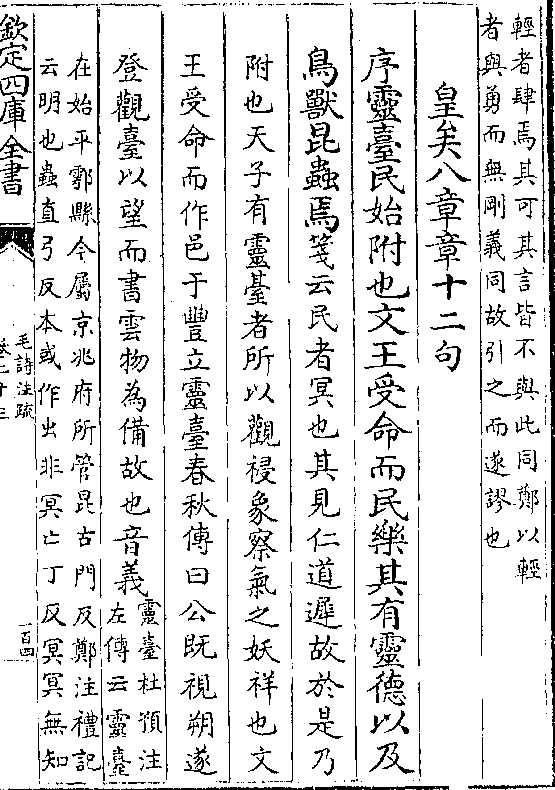 輕者肆焉其可其言皆不與此同鄭以輕
者與勇而無剛義同故引之而遂謬也
皇矣八章章十二句
序靈臺民始附也文王受命而民樂其有靈德以及
鳥獸昆蟲焉箋云民者冥也其見仁道遲故於是乃
附也天子有靈臺者所以觀祲象察氣之妖祥也文
王受命而作邑于豐立靈臺春秋傳曰公既視朔遂
登觀臺以望而書雲物為備故也音義
靈臺杜預注
左傳云靈臺
在始平鄠縣今屬京兆府所管昆古門反鄭注禮記
云明也蟲直弓反本或作虫非冥亡丁反冥冥無知
欽定四庫全書
毛詩注疏
卷二十三
一百四